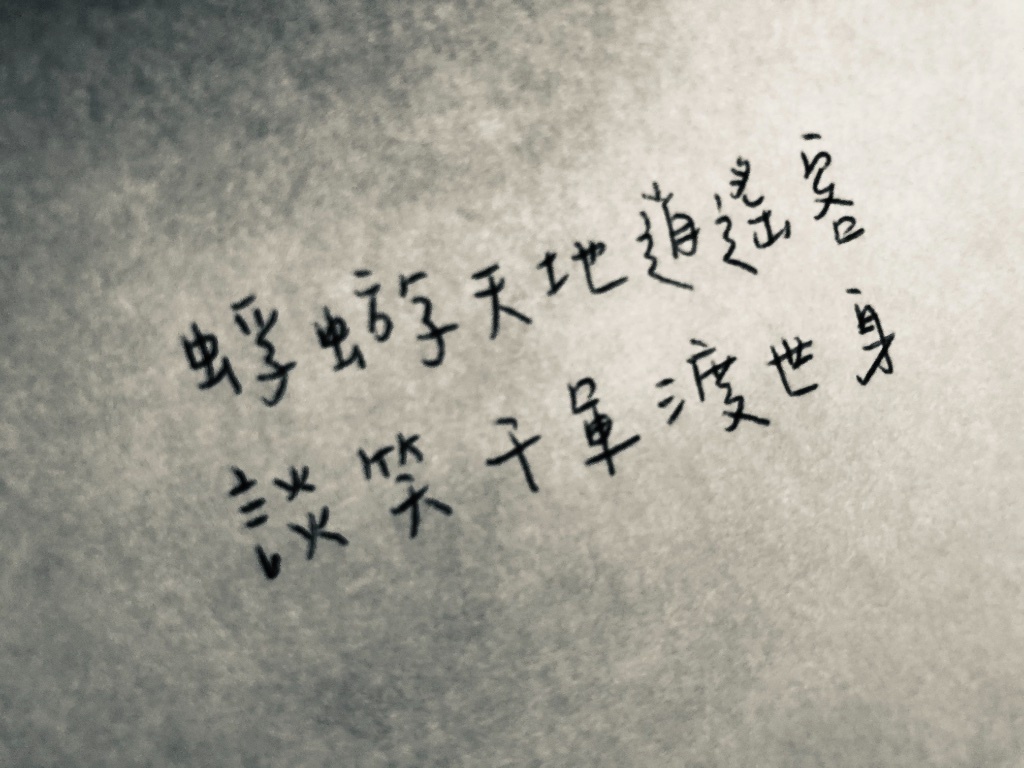 蜉蝣天地逍遙客
談笑千軍渡世身